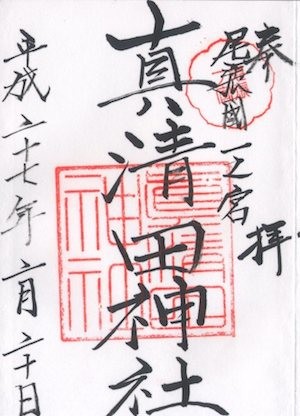 奉拝
尾張国一之宮
真清田神社
平成二十七年二月二十日